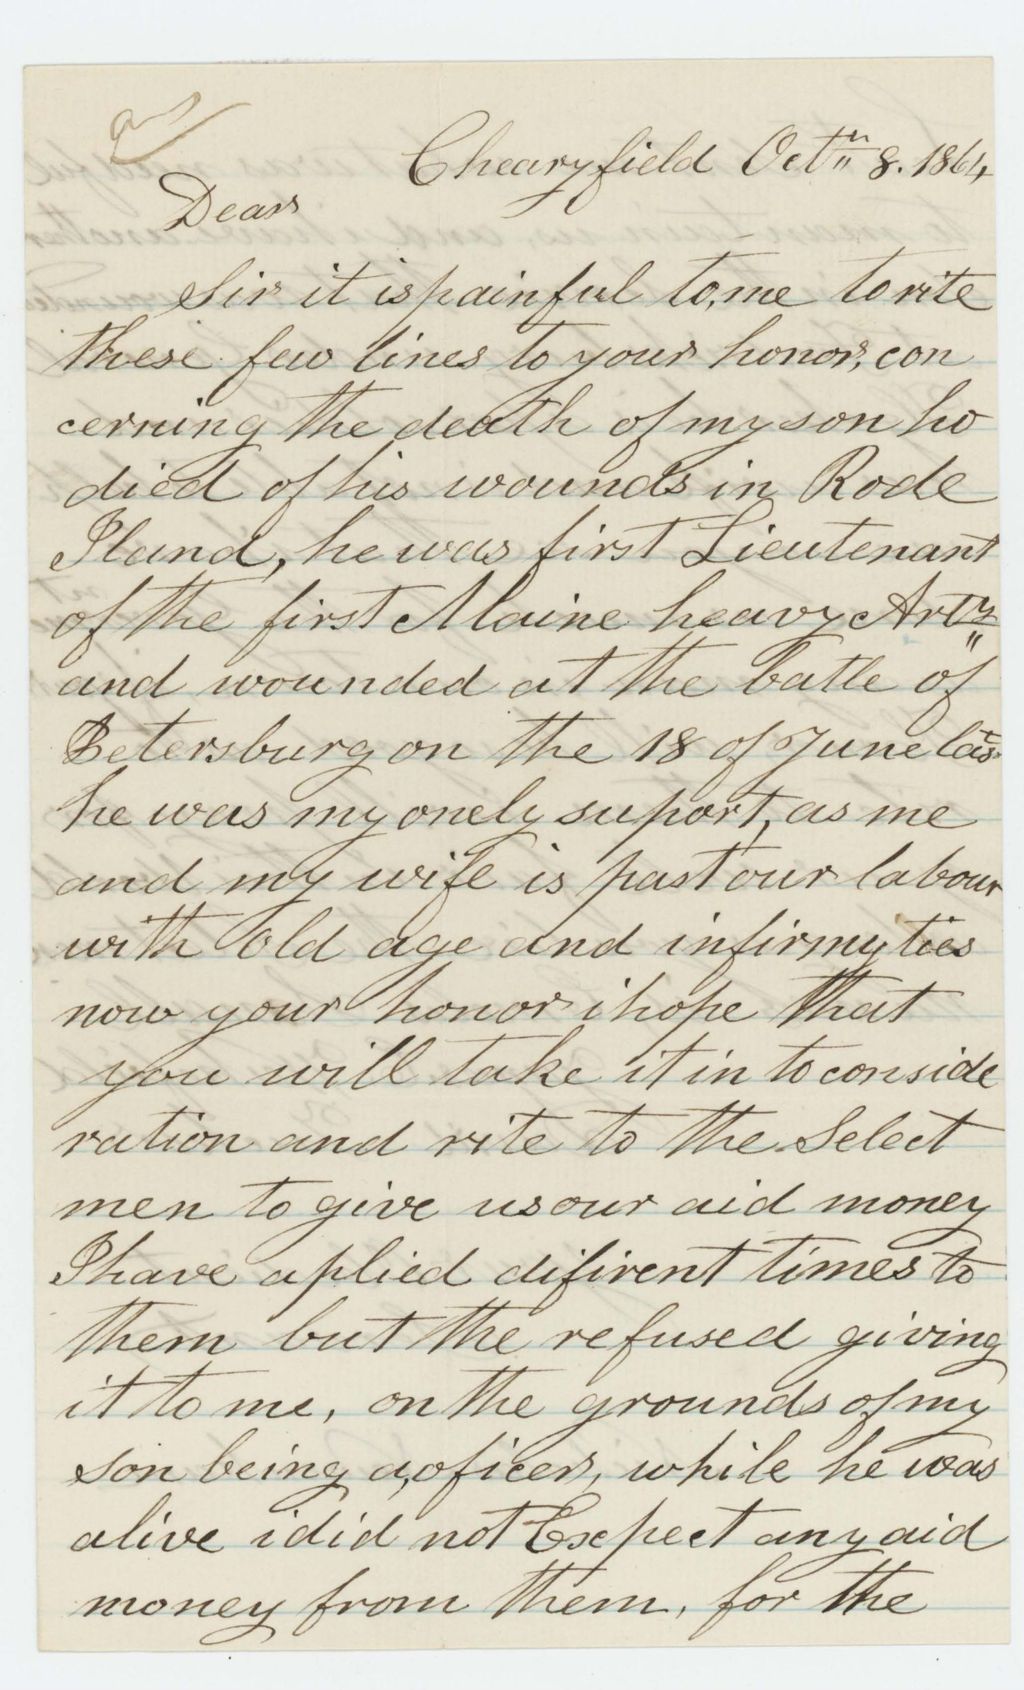 ans
Chearyfield Octr 8. 1864
Dear
Sir it is painful to, me to rite
these few lines to your honor, con
cerning the death of my son ho
died of his wounds in Rode
Iland, he was first Lieutenant
of the first Maine heavy Arty
and wounded at the batle of
Petersburg on the 18 of June last
he was my onely suport, as me
and my wife is past our labour
with old age and infirmyties
now your honor i hope that
you will take it in to conside
ration and rite to the Select
men to give us our aid money
I have aplied difirent times to
them but the refused giving
it to me, on the grounds of my
son being a, oficer, while he was
alive i did not Expect any aid
money from them, for the